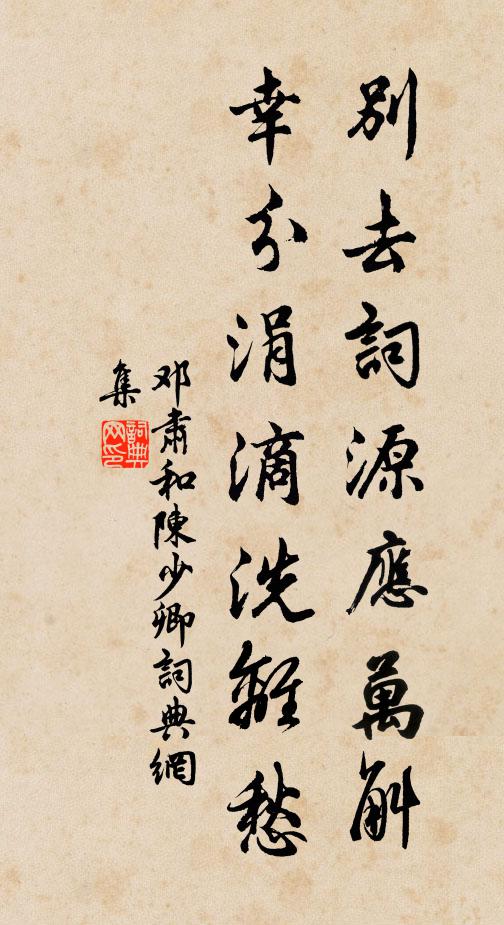 別去詞源應萬斛
幸分涓滴洗離愁
邓肅和陳少卿詞典網
集
詞典
网印